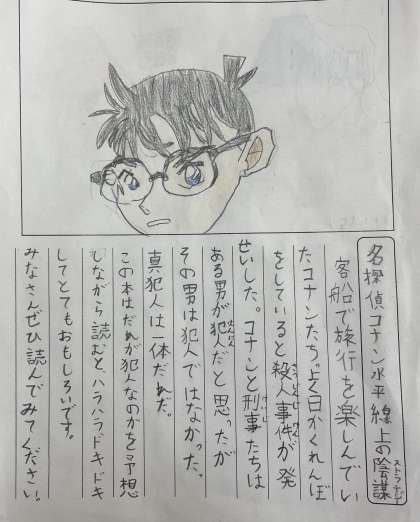 名探偵コナン水平線上の陰謀
ストラテジー
客船で旅行を楽しんでい
たコナンたち 日かくれんぼ
をしていると殺人事件が発
せいした。コナンと刑事たちは
ある男が犯人だと思ったが
その男は犯人ではなかった。
真犯人は一体だれだ。
この本はだれが犯人なのかを予想
しながら読むと、ハラハラドキドキ
してとてもおもしろいです。
みなさんぜひ読んでみてください。